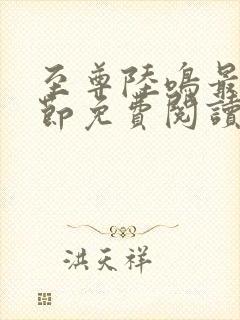 至尊陸鳴最
節免費閱讀
洪天祥